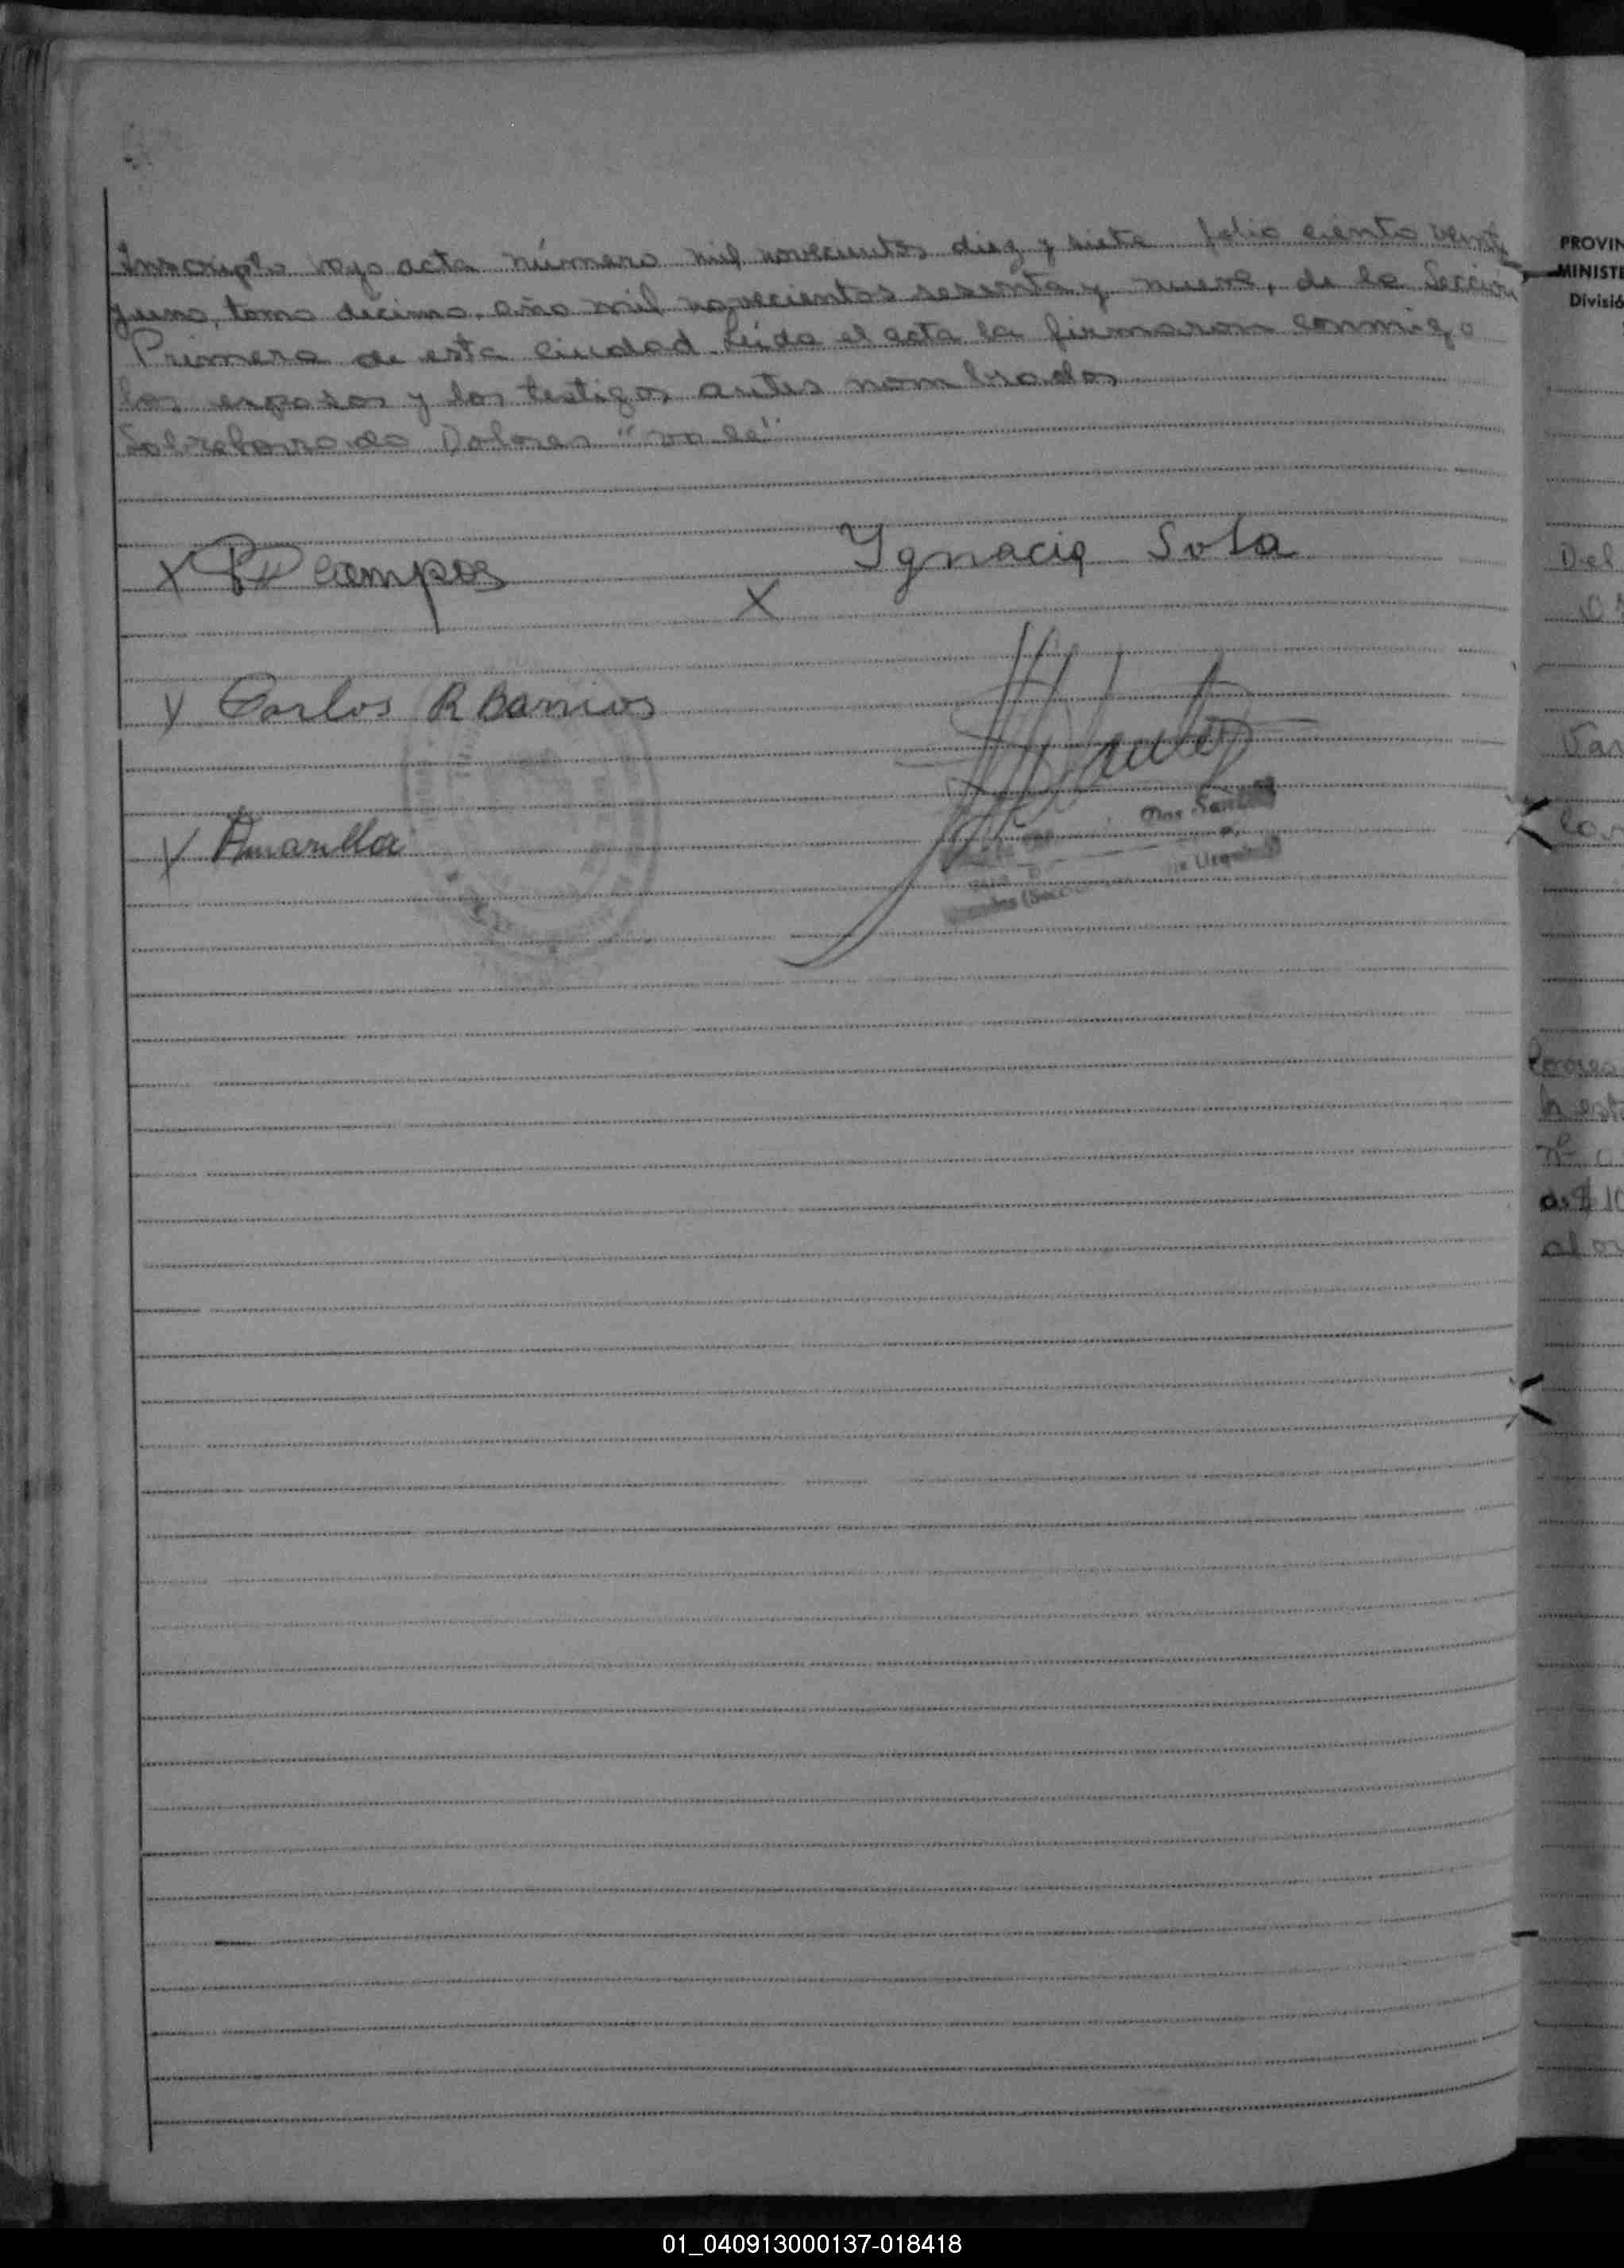 Inscripto bajo acta número mil novecientos diez y siete folio ciento veinti
yuno, tomo décimo, año mil novecientos sesenta y nueve, de la Sección
Primera de esta ciudad. Leída el acta la firmaron conmigo
los esposos y los testigos antes nombrados
Sobreborrado Dolores "vale"
X Campos
Ygnacio Sola
X
X Carlos R Barrios
X Amarilla
Dos Santos
Urquiza
PROVIN
MINISTE
Divisió
Del
01_040913000137-018418